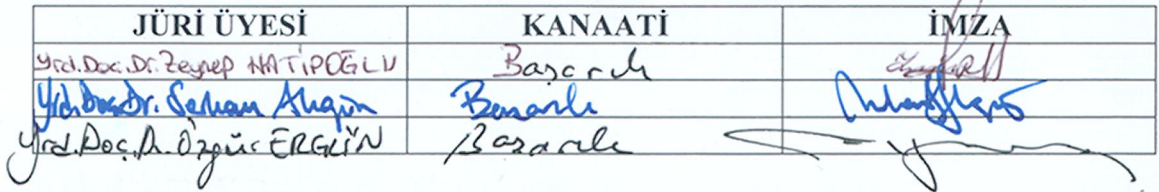 JÜRİ ÜYESİ KANAATİ İMZA
Yrd.Doç.Dr. Zeynep HATİPOĞLU Başarılı
Yrd.Doç.Dr. Serhan Başarılı
Yrd.Doç.Dr. Özgür ERGÜN Başarılı